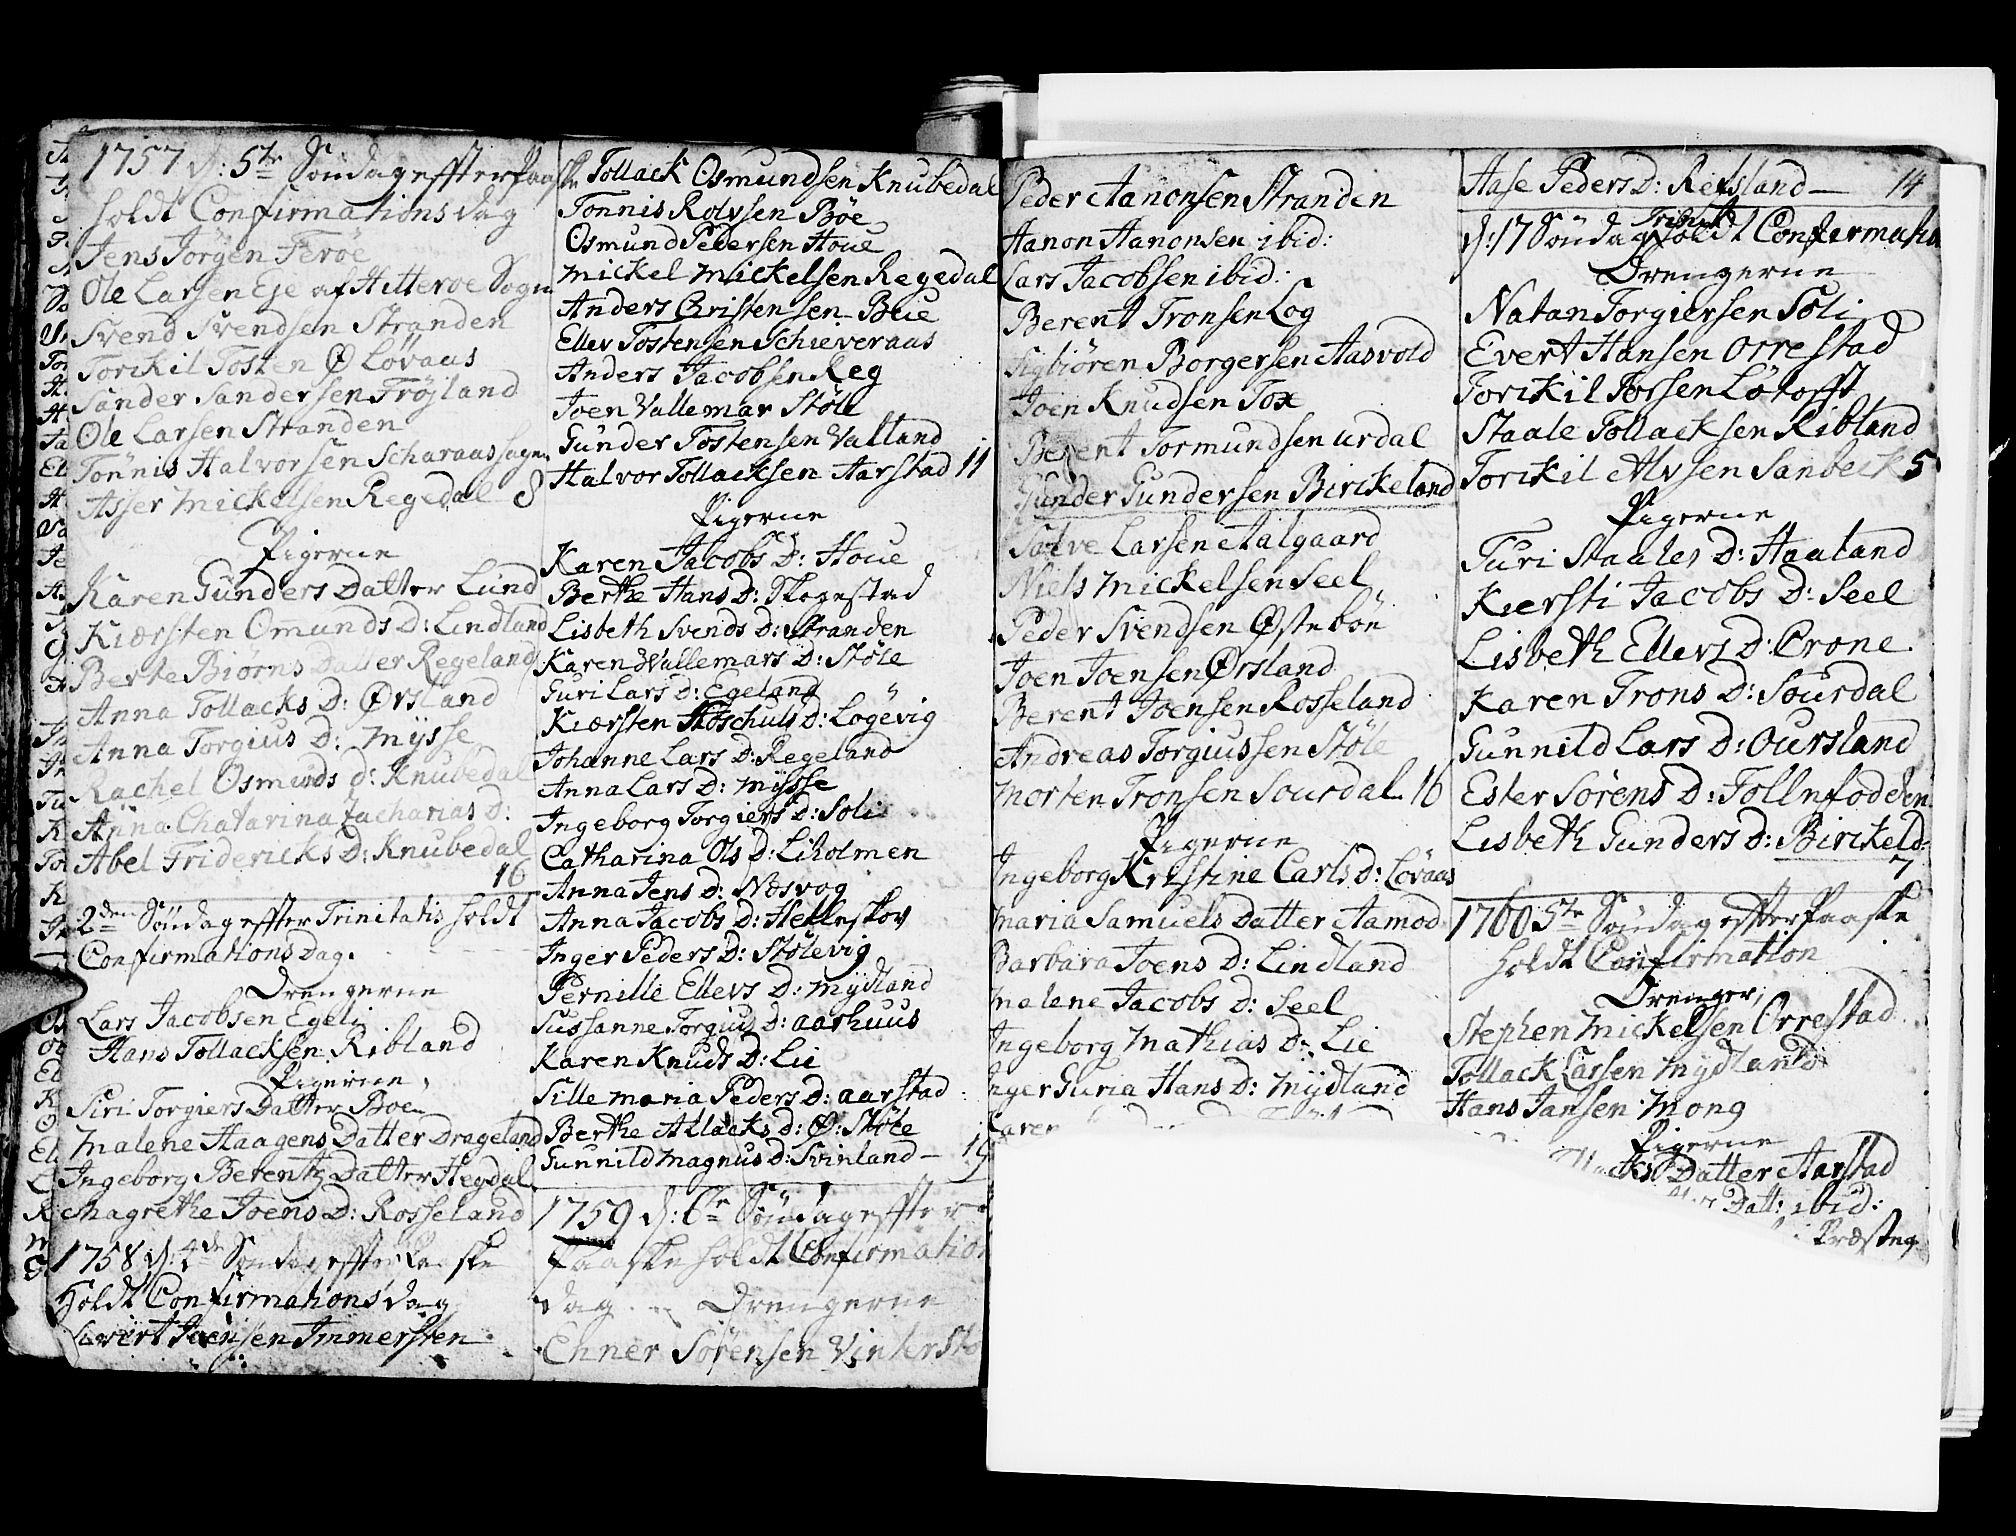 1757 d: 5te Søndag effter Paaske
holdt Confirmations dag
Jens Jörgen Feröe
Ole Larsen Eje af Hitteroe Sogn
Svend Svendsen Stranden
Torckil Tosten Ø Løvaas
Sander Sandersen Fröjland
Ole Larsen Stranden
Tonnis Halvorsen Scharaas sogn
Asser Mickelsen Regedal 8
Pigerne
Karen Gunders Datter Lund
Kiærsten Omunds D: Lindland
Berte Biørns Datter Regeland
Anna Tollacks D: Ørsland
Anna Torgius D: Mysse
Rachel Osmunds d: Knubedal
Anna Chatarina Zacharias D:
Abel Fridericks D: Knubedal
16
2den Søndag effter Trinitatis holdt
Confirmations Dag.
Drengerne
Lars Jacobsen Egeli
Hans Tollacksen Ribland
Pigerne
Siri Torgiers Datter Boe
Malene Haagens Datter Drageland
Ingeborg Berentz Datter Hegdal
Magrethe Joens D: Rosseland
1758 d: 4de Søndag effter Paaske
Holdt Confirmations dag
Jmmersten
Tollack Osmundsen Knubedal
Tonnis Rolvsen Böe
Osmund Pedersen Houe
Mickel Mickelsen Regedal
Anders Christensen Bue
Ellev Tostensen Schieveraas
Anders Jacobsen Reg
Joen Vallemar Støle
Gunder Tostensen Vatland
Halvor Tollacksen Aarstad 11
Pigerne
Karen Jacobs D: Houe
Berthe Hans D: Skogestad
Lisbeth Svends D: Stranden
Karen Wallemars D: Støle
Guri Lars D: Egeland
Kiærsten Stoschuls D: Logevig
Johanne Lars D: Regeland
Anna Lars D: Mysse
Ingeborg Torgiers D: Soli
Catharina Ols D: Liholmen
Anna Jens D: Næsvog
Anna Jacobs D: Helleskov
Inger Peders D: Stølevig
Pernille Ellevs D: Mydland
Sussanne Torgius D: aarhuus
Karen Knuds D: Lie
Sille maria Peders D: aarstad
Berthe Atlacks D: Ø: Støle
Gunnild Magnus D: Svinland – 19
1759 d: 6te Søndag effter
Paaske holdt Confirmation
dag. Drengerne
Ehner Sørensen Vintersto
Peder Aanonsen Stranden
Aanon Aanonsen ibid:
Lars Jacobsen ibid:
Berent Tronsen Log
Sigbiören Borgersen Aasvold
Joen Knudsen Tox
Berent Tormundsen Urdal
Gunder Gundersen Birckeland
Salve Larsen Aalgaard
Niels Mickelsen Seel
Peder Svendsen Østebön
Joen Joensen Ørsland
Berent Joensen Rosseland
Andreas Torgiussen Støle
Morten Tronsen Sourdal 16
Pigerne
Ingeborg Kristine Carls D: Løvaas
Maria Samuels Datter Aamod
Barbara Joens D: Lindland
Malene Jacobs D: Seel
Ingeborg Mathias D: Lie
Inger Guria Hans D: Mydland
Karen
Aase Peders D: Refsland – 14
d: 17 Söndag Trinit holdt Confirmation
Drengerne
Natan Torgiersen Soli
Evert Hansen Orrestad
Torckil Torsen Lotofft
Staale Tollacksen Ribland
Torckil Alvsen Sanbeck 5
Pigerne
Turi Staales D: Haaland
Kiersti Jacobs D: Seel
Lisbeth Ellevs D: Orone
Karen Trons D: Sourdal
Gunnild Lars D: Oursland
Ester Sörens D: Tollnfodden
Lisbeth Gunders D: Birckeld:
7
1760 5te Søndag effter Paaske
holdt Confirmation
Drenger,
Stephen Mickelsen Orrestad
Tollack Larsen Mydland
Hans Jansen Mong
Pigerne
Datter Aarstad
Datt: ibid:
Præsteg